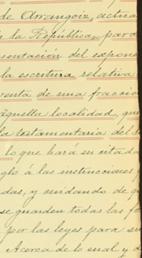 de Arrangoiz, activa
e la República, para
sentación del expone
la escritura relativa
renta de una fracción
aquella localidad, que
la testamentaria del
lo que hará su citada
glo á las instrucciones
das, y cuidando de q
se guarden todas las fo
por las leyes para su
Acerca de lo cual y d